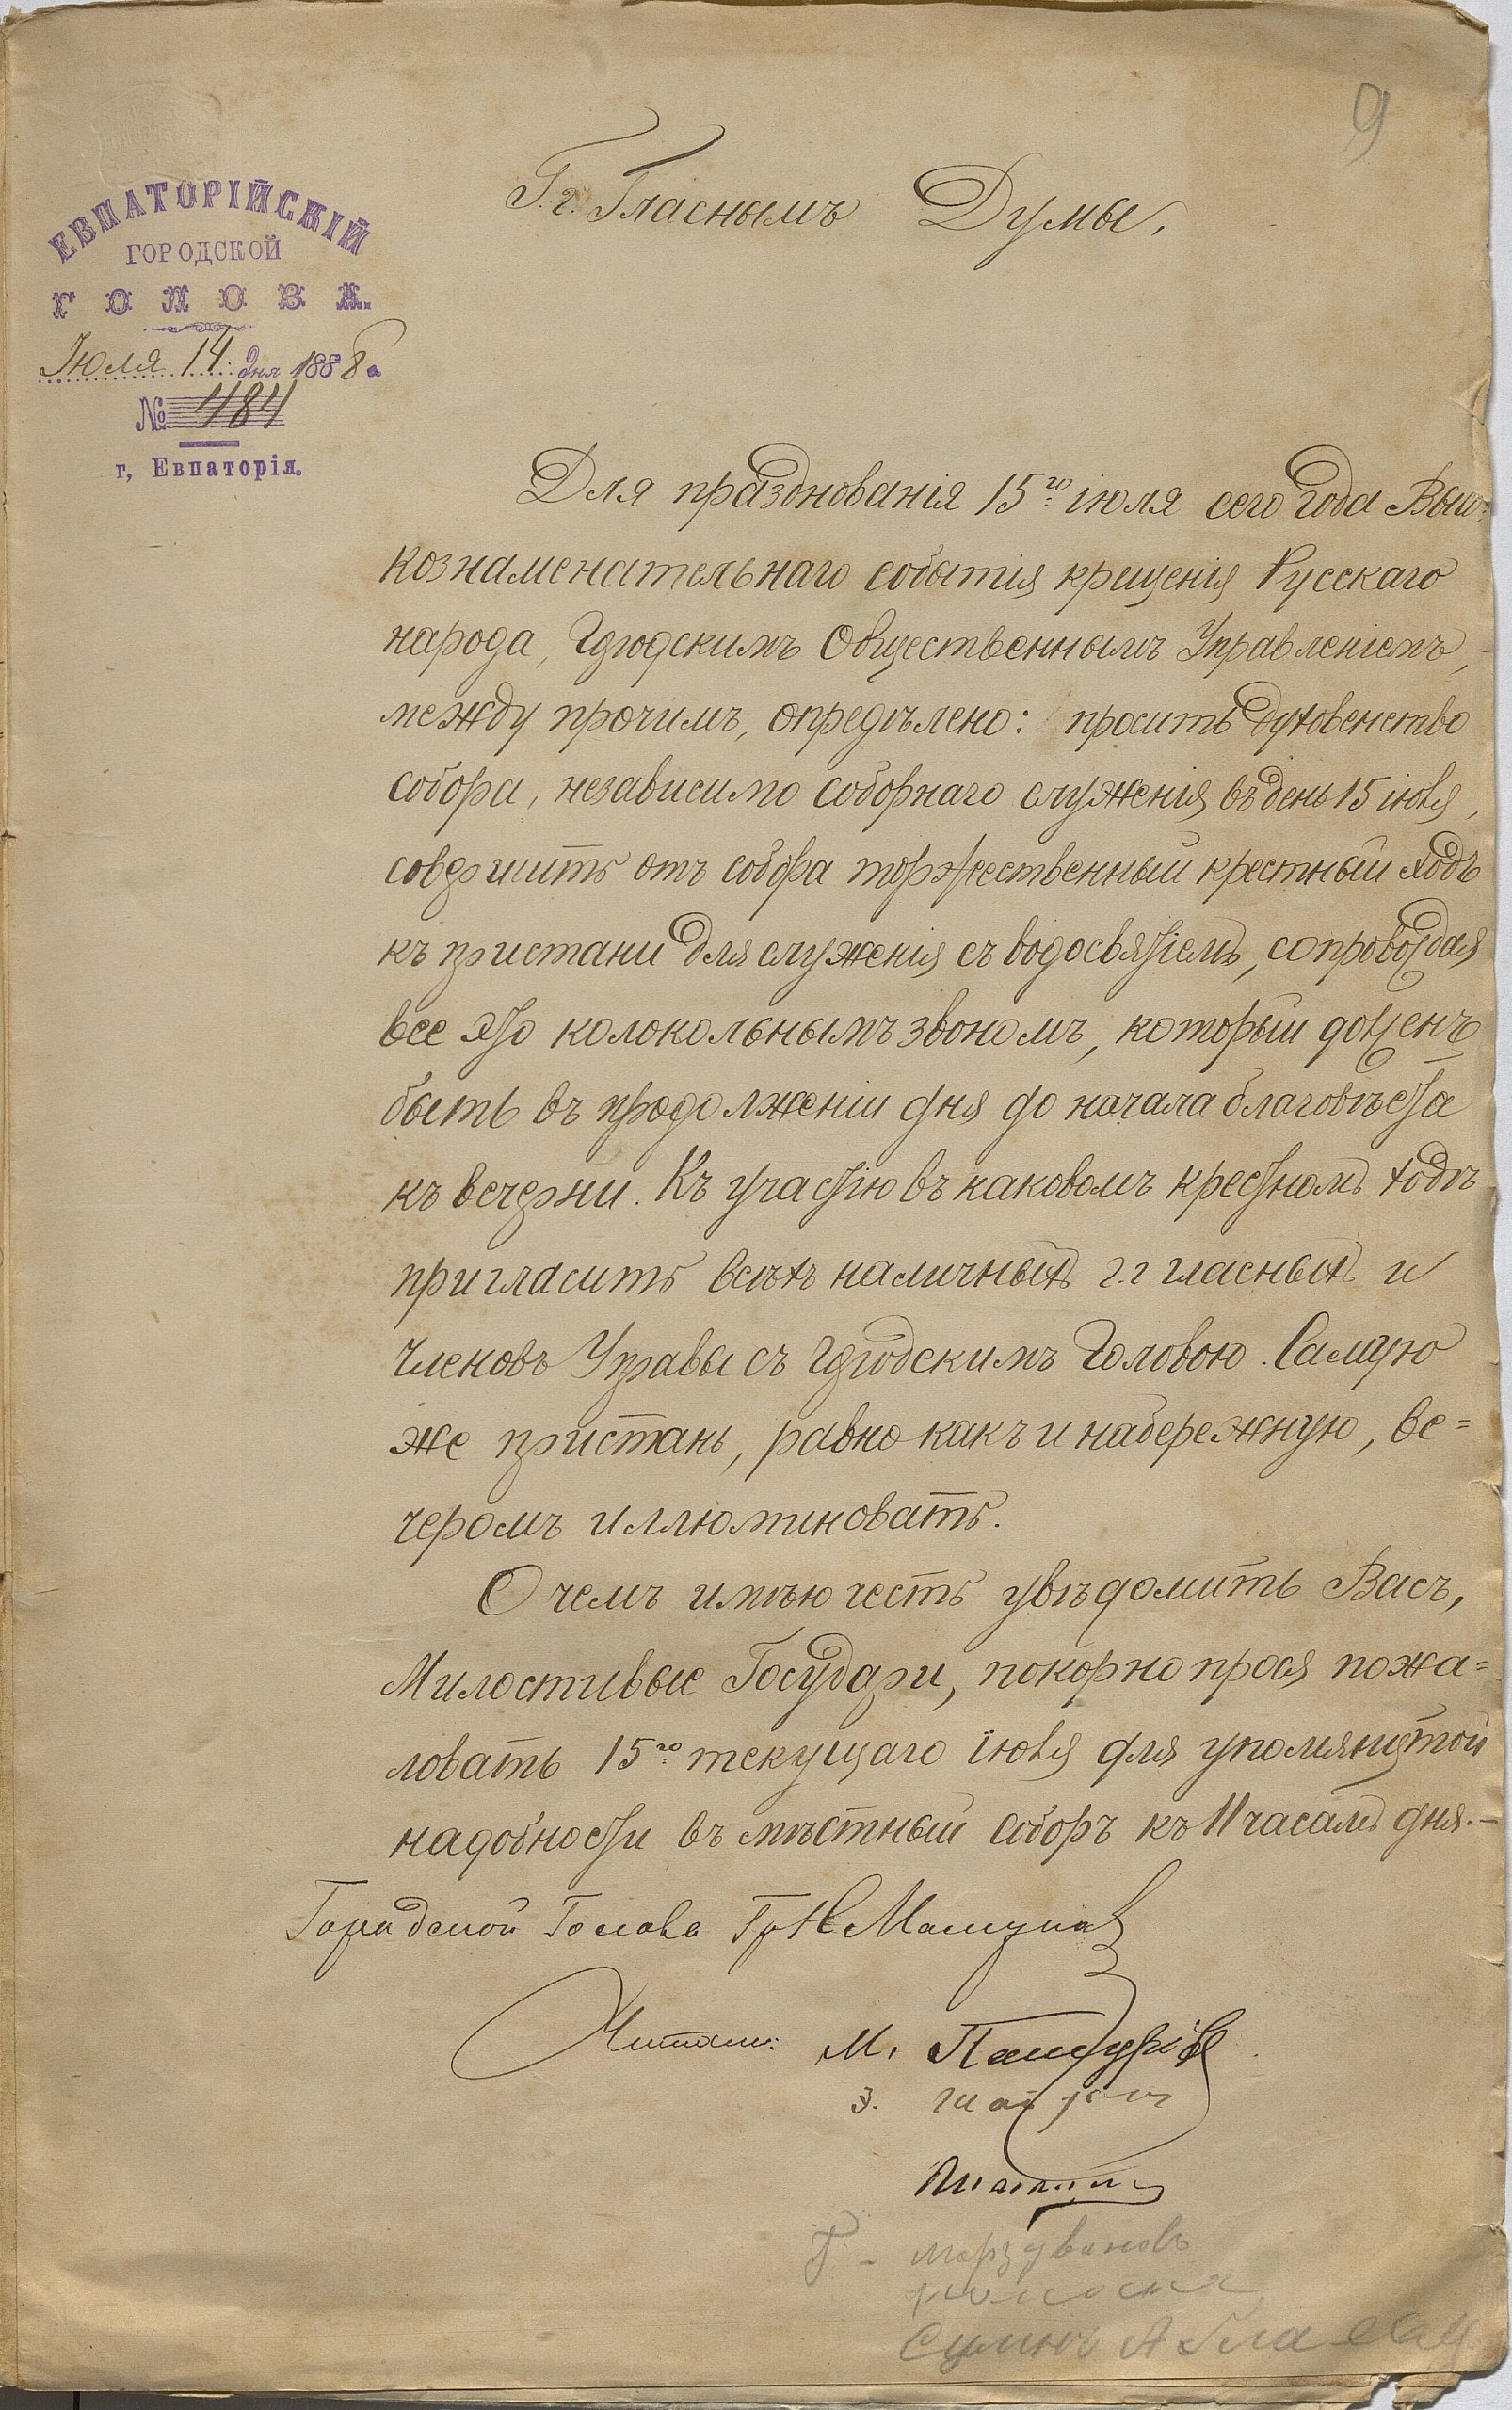 9
ЕВПАТОРІЙСКІЙ
ГОРОДСКОЙ
ГОЛОВА.
Іюля 14 дня 1888 г.
№ 484
г, Евпаторія.
Г.г. Гласнымъ Думы,
Для празднованія 15го іюля сего года Высо-
кознаменательнаго событія крещенія Русскаго
народа, Городскимъ Общественнымъ Управленіемъ,
между прочимъ, опредѣлено: просить духовенство
собора, независимо соборнаго служенія въ день 15 іюля,
совершить отъ собора торжественный крестный ходъ
къ пристани для служенія съ водосвятіемъ, сопровождая
все это колокольнымъ звономъ, который долженъ
быть въ продолженіи дня до начала благовѣста
къ вечерни. Къ участію въ каковомъ крестномъ ходѣ
пригласить всѣхъ наличныхъ г.г гласныхъ и
членовъ Управы съ Городскимъ Головою. Самую
же пристань, равно какъ и набережную, ве=
черомъ иллюминовать.
О чемъ имѣю честь увѣдомить Васъ,
Милостивые Государи, покорно прося пожа=
ловать 15го текущаго іюля для упомянутой
надобности въ мѣстный соборъ къ 11 часамъ дня.—
Городской Голова Гр Н Мамуна
Читали: М.
З.